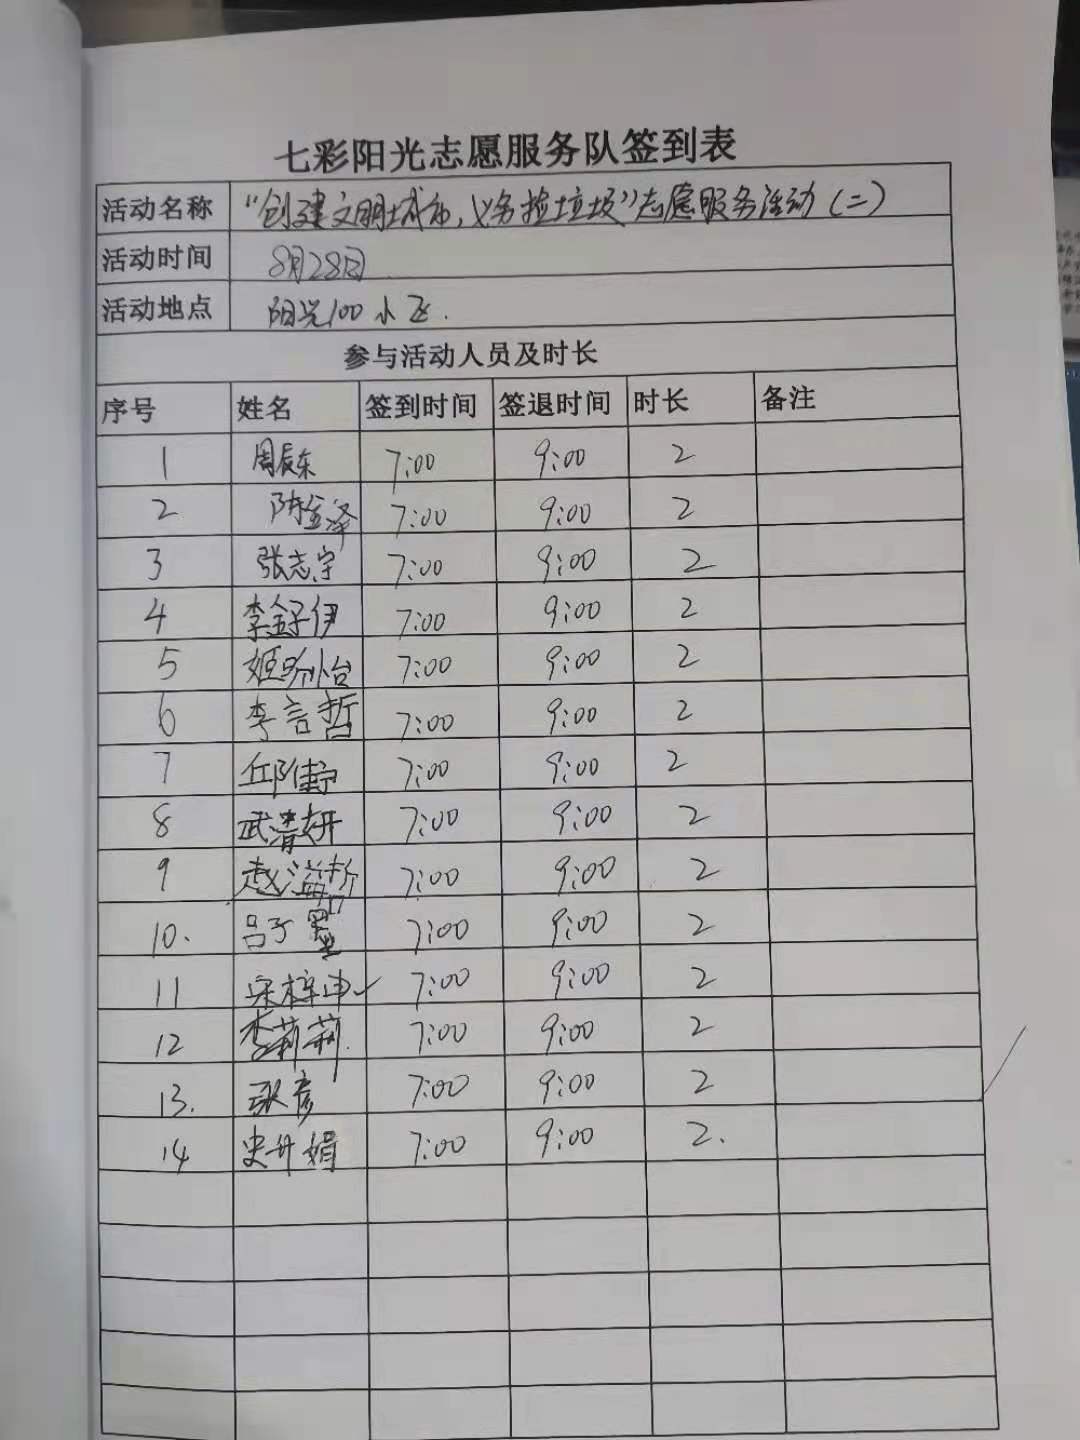 七彩阳光志愿服务队签到表
活动名称 "创建文明城市,义务捡垃圾"志愿服务活动(二)
活动时间 8月28日
活动地点 阳光100小飞.
参与活动人员及时长
序号 姓名 签到时间 签退时间 时长 备注
1 周辰东 7:00 9:00 2
2 陈金泽 7:00 9:00 2
3 张志宇 7:00 9:00 2
4 李金子伊 7:00 9:00 2
5 姬 怡 7:00 9:00 2
6 李言哲 7:00 9:00 2
7 7:00 9:00 2
8 武清妍 7:00 9:00 2
9 赵溢 7:00 9:00 2
10. 吕子墨 7:00 9:00 2
11 宋梓 7:00 9:00 2
12 李莉莉 7:00 9:00 2
13. 彦 7:00 9:00 2
14 史丹娟 7:00 9:00 2.